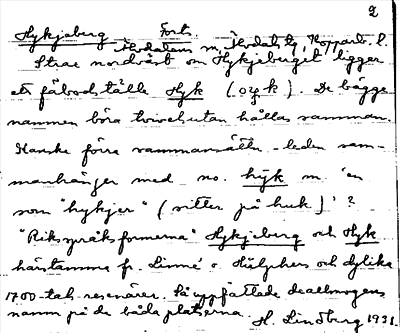 2
Hykjeberg Forts.
Älvdalens sn, Älvdals tg, Kopparb. l.
Strax nordväst om Hykjeberget ligger
ett fäbodställe Hyk (            ). De bägge
namnen böra tvivelsutan hållas samman.
Kanske förra sammansättn.-leden sam-
manhänger med no. hŷk m. 'en
som "hykjer" (sitter på huk)' ?
"Riksspråksformerna" Hykjeberg och Hyk
härstamma fr. Linné o. Hülphers och dylika
1700-tals resenärer. Så uppfattade de allmogens
namn på de båda platserna. H. Lindberg 1931.